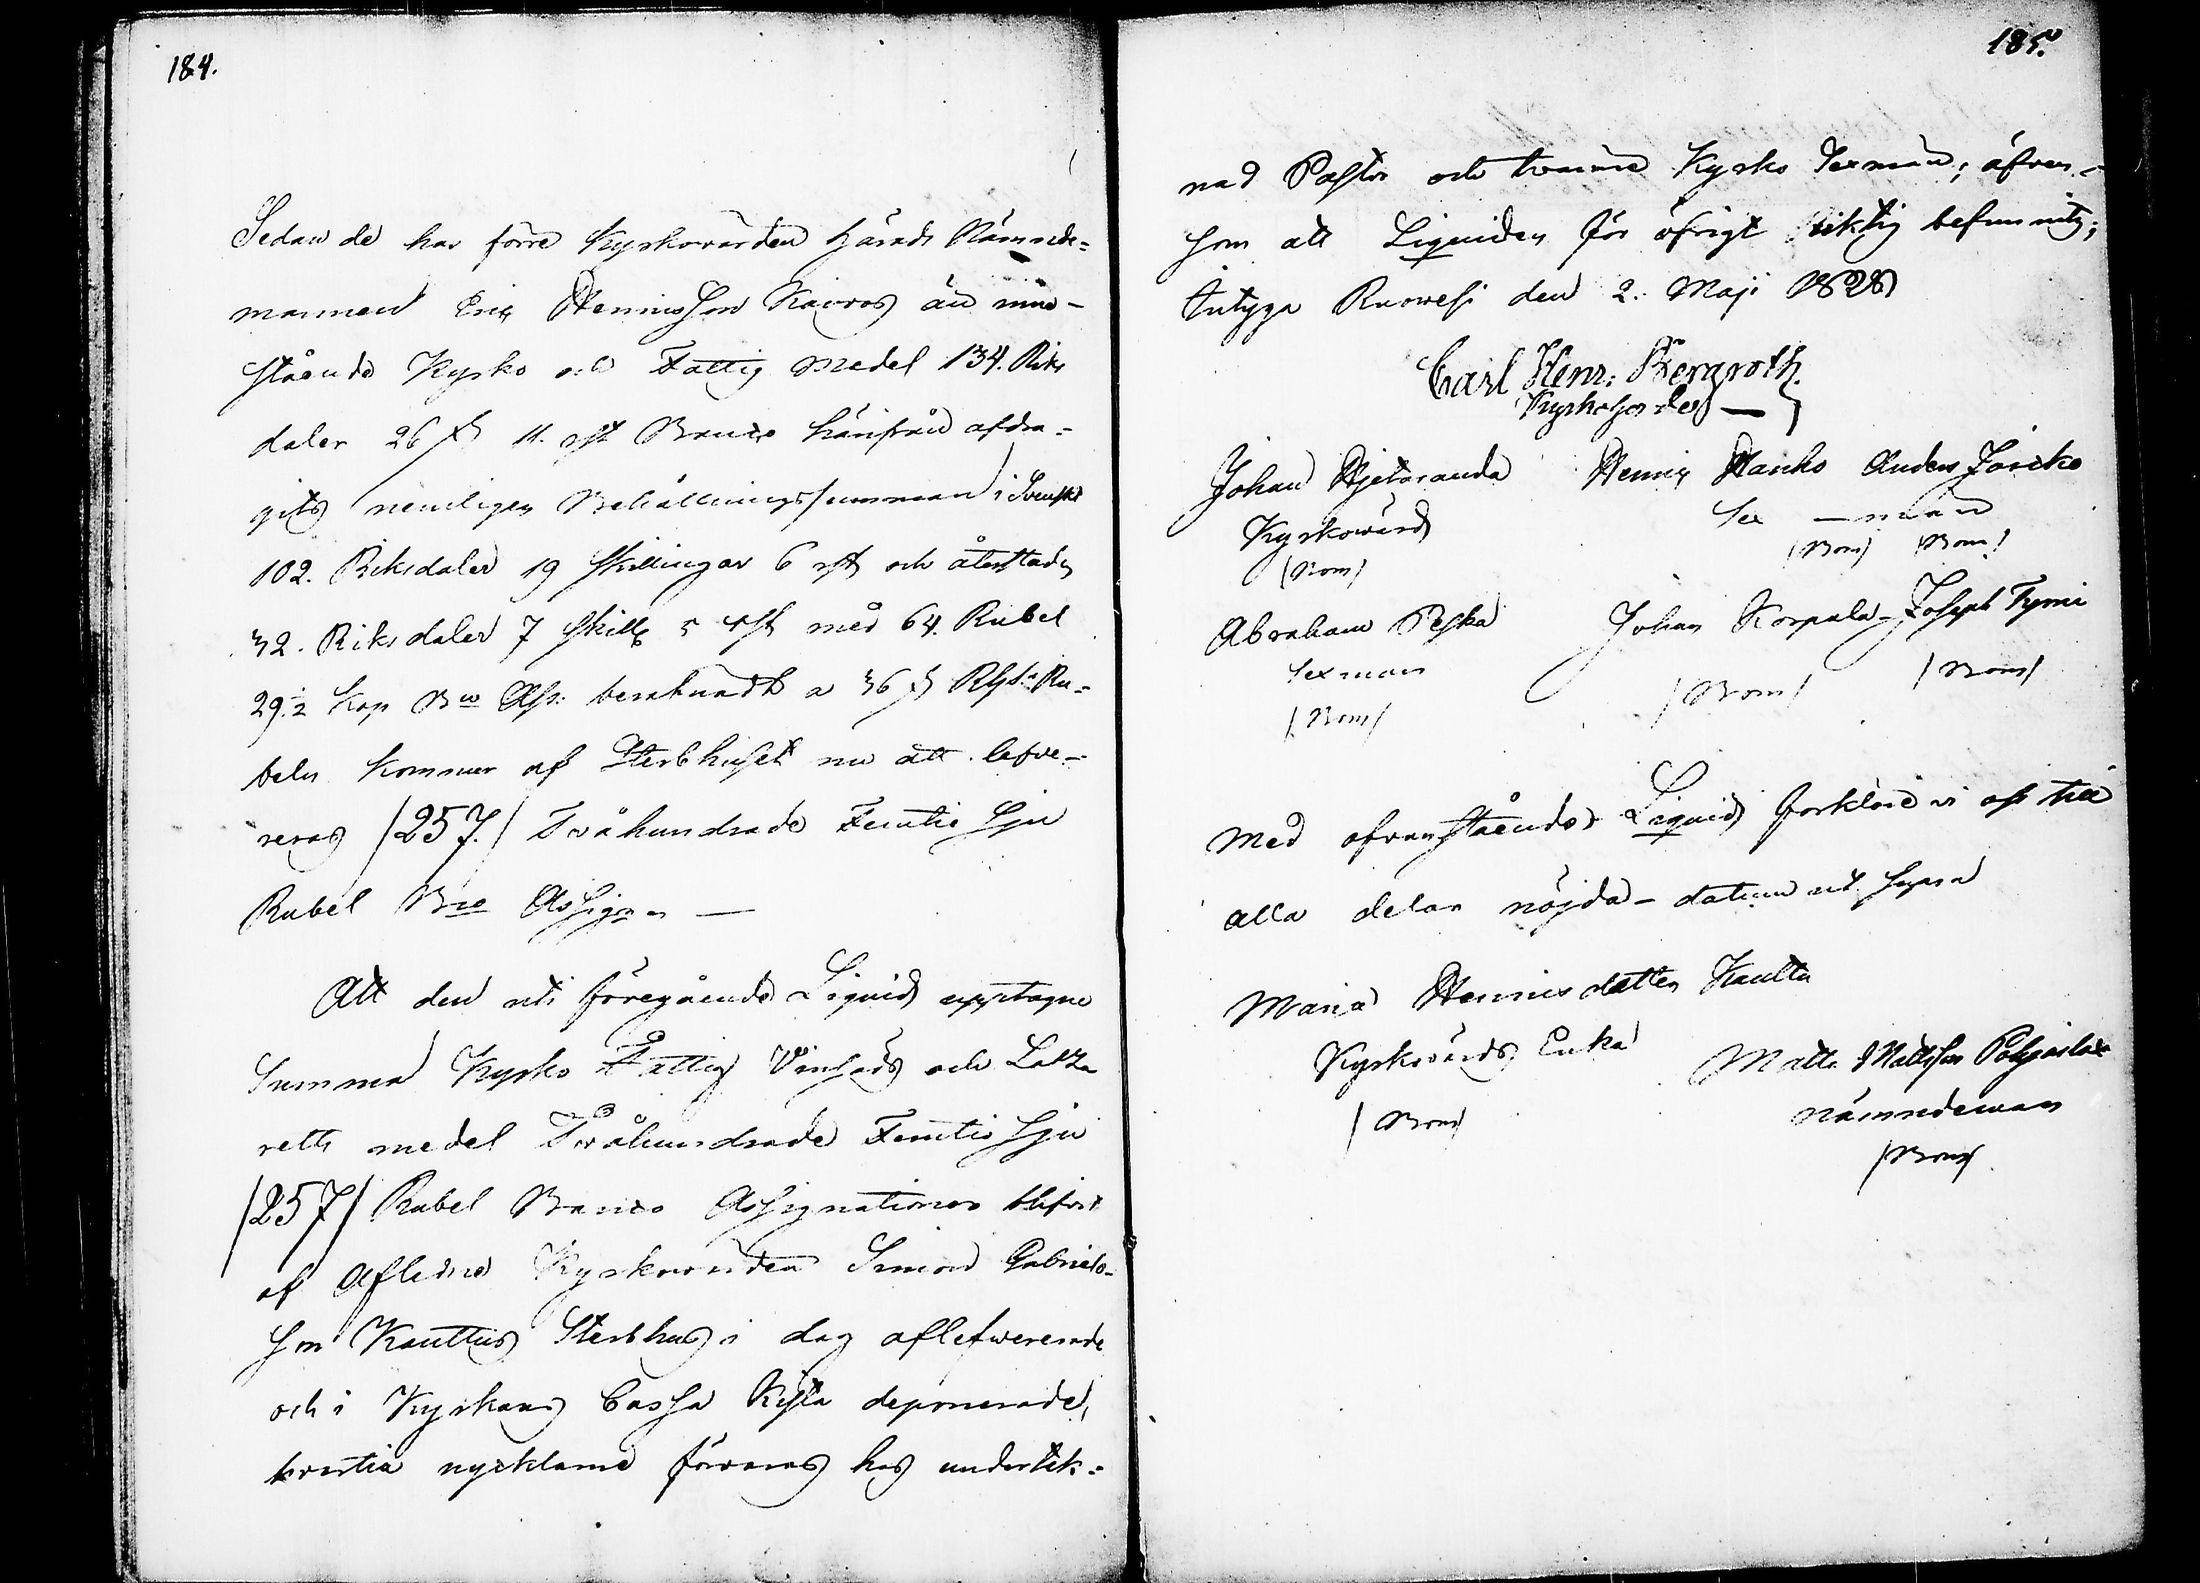 184.
Sedan de hos förre Kyrkovärden Härads Nämnde=
mannen Eric Henricsson Kaivos än inne-
stående Kyrko och Fattig medel 134. Riks
daler 26 s 11. rst Banco härifrån afdra=
gits nemligen Behållnings summan i Svenskt
102. Riksdaler 19 skillingar 6 rst och återstads
32. Riksdaler 7 skillg 5 rst med 64. Rubel
29.½ Kop Bco Ass: beräknadt a 36 s Rgs. Ru=
beln kommer af Sterbhuset nu att lefve-
reras /257./ Tvåhundrade Femtio Sju
Rubel Bco Assign. —
Att den uti föregående Liquid upptagne
Summa Kyrko Fattig Vinsäds och Laza
retts medel Tvåhundrade Femtio Sju
/257/ Rubel Banco Assignationer blifvit
af Aflidne Kyrkovärden Simon Gabriels-
son Kauttus Sterbhus i dag aflefwererade
och i Kyrkans Cassa Kista deponerade,
hvartill nycklarne förvaras hos undertek=
185.
nad Pastor och tvänne Kyrko Sexmän; äfven-
som att Liquiden för öfrigt riktig befunnits;
Intyga Ruovesi den 2. Maji 1828
Carl Henr: Bergroth.
Kyrkoherde
Johan Hietaranda Henric Hanho Anders Jäncko
Kyrkovärd Sex — män
/Bom/ /Bom/ /Bom/
Abraham Peska Johan Korpula – Joseph Tyrni
Sexman
/Bom/ /Bom/ /Bom/
Med ofvanstående Liquid förklare vi oss till
alla delar nöjda – datum ut supra
Maria Henricsdotter Kautta
Kyrkovärds Enka Matts Mattsson Pohjaslax
/Bom/ nämndeman
/Bom/